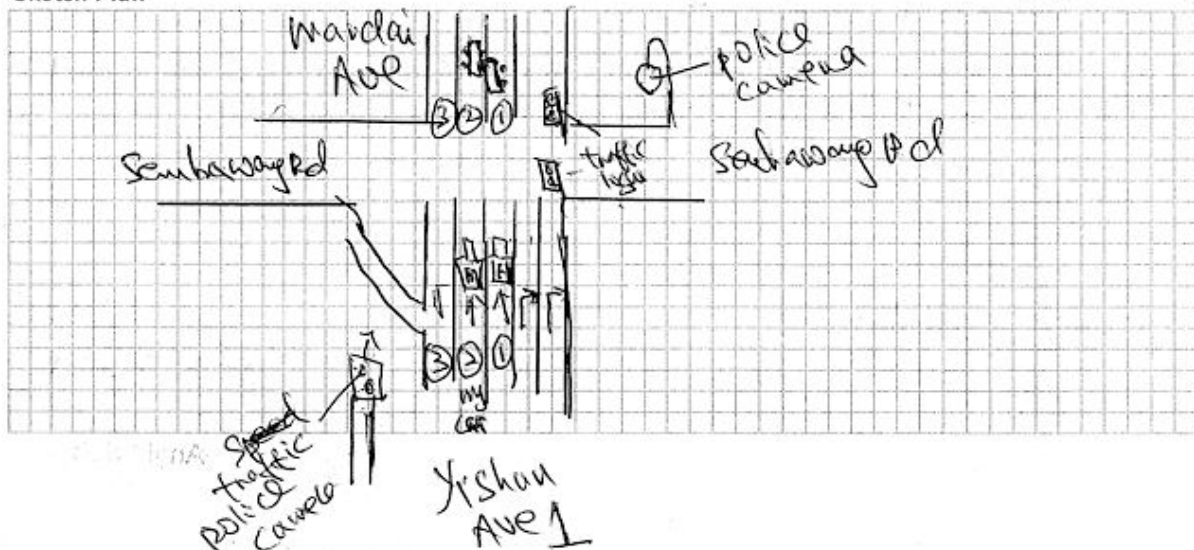 Mandai
Ave
police
camera
③ ② ①
Sembawang Rd
traffic
light
Sembawang Rd
③ ② ①
my
car
speed
traffic
police
camera
Yishun
Ave 1